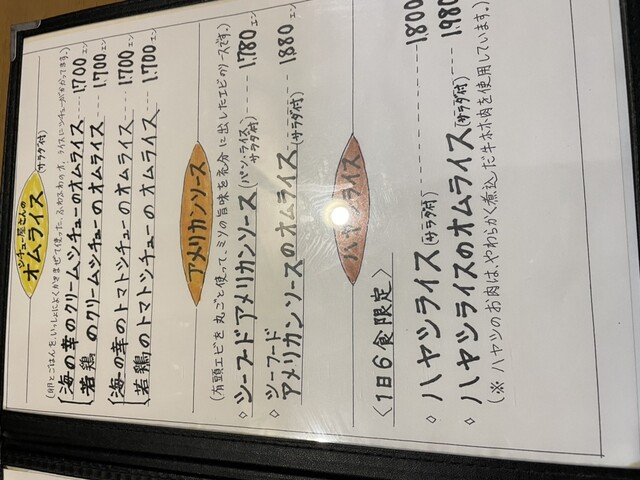 シチュー屋さんの
オムライス
(サラダ付)
海の幸のクリームシチューのオムライス---1,700エン
若鶏のクリームシチューのオムライス---1,700エン
海の幸のトマトシチューのオムライス---1,700エン
若鶏のトマトシチューのオムライス---1,700エン
アメリカンソース
(有頭エビを丸ごと使って、ミソの旨味を充分に出したエビのソースです。)
◇シーフードアメリカンソース(パン・ライス・サラダ付)---1,780エン
◇シーフード
アメリカンソースのオムライス(サラダ付)---1,880エン
ハヤシライス
〈1日6食限定〉
◇ハヤシライス(サラダ付)---1,800
◇ハヤシライスのオムライス(サラダ付)---1,980
(※ハヤシのお肉は、やわらかく煮込んだ牛ホホ肉を使用しています。)